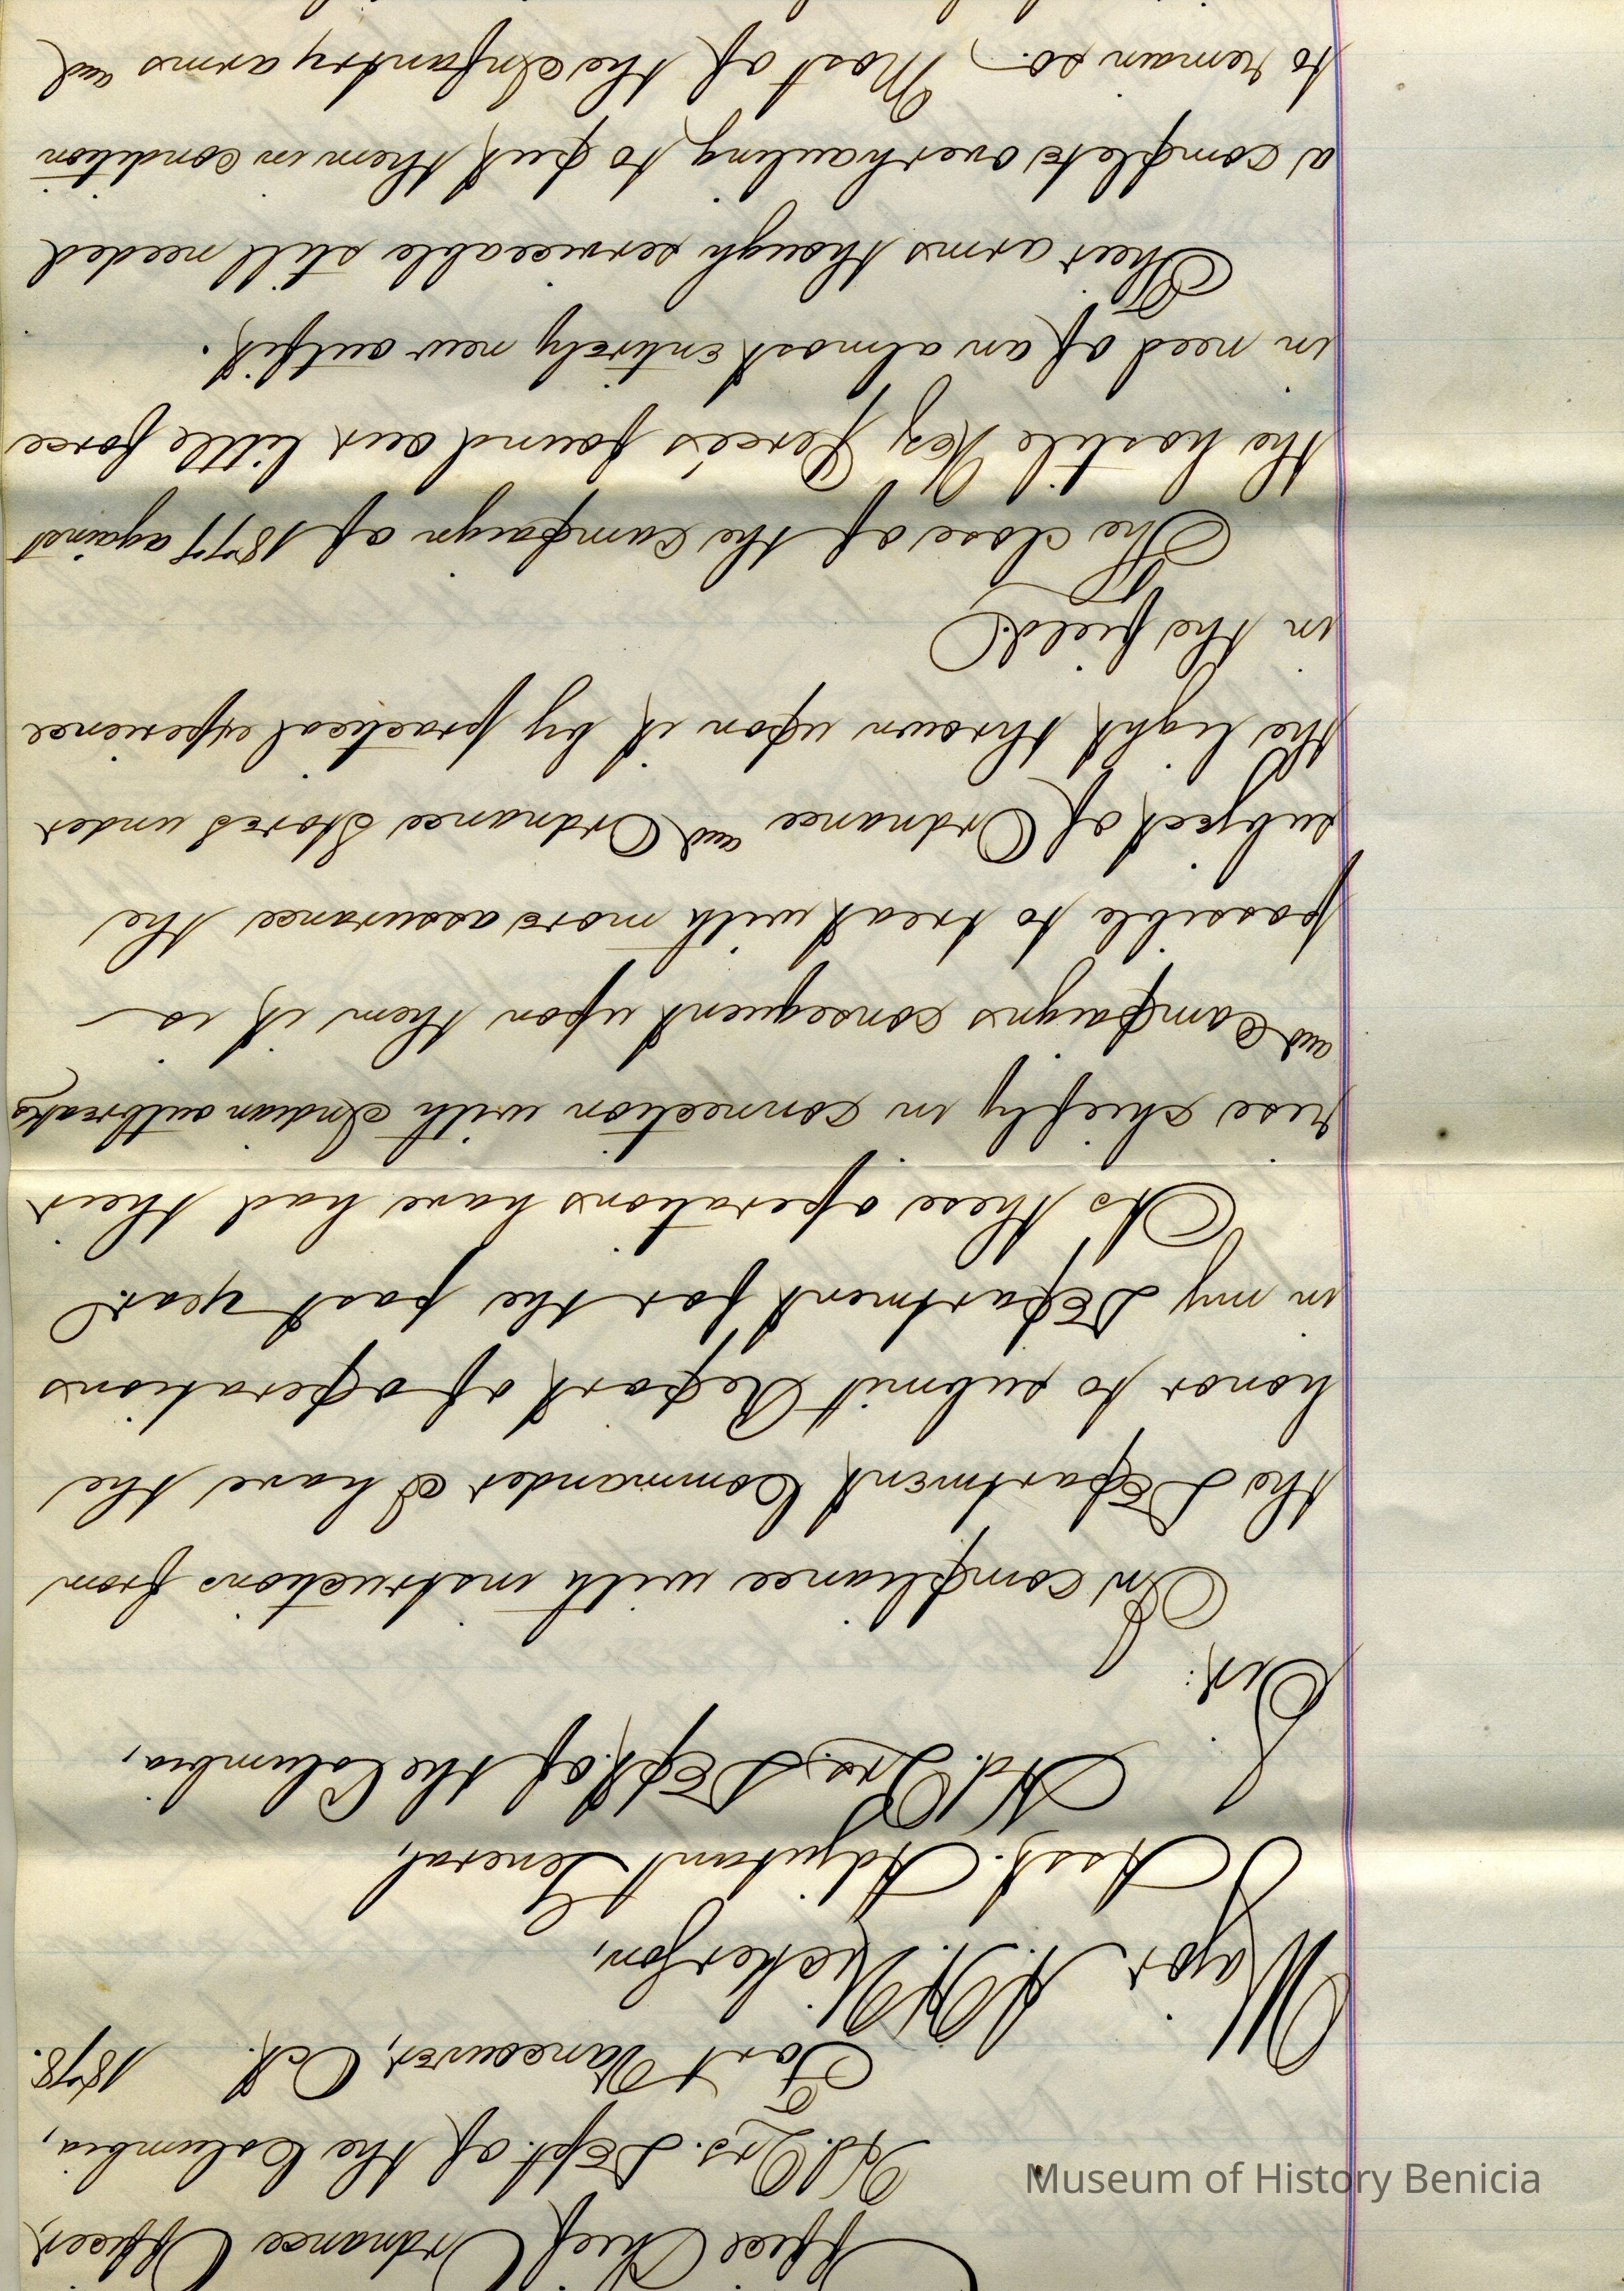 Office Chief Ordnance Officer,
Hd. Qrs. Dept. of the Columbia,
Fort Vancouver, Oct. 1878.
Major A. H. Nickerson,
Asst. Adjutant General,
Hd. Qrs. Dept. of the Columbia,
Sir:
In compliance with instructions from
the Department Commander I have the
honor to submit Report of operations
in my Department for the past year.
As these operations have had their
rise chiefly in connection with Indian outbreaks
and Campaigns consequent upon them it is
possible to treat with more assurance the
subject of Ordnance and Ordnance Stores under
the light thrown upon it by practical experience
in the field.
The close of the Campaign of 1877 against
the hostile Nez Perces found our little force
in need of an almost entirely new outfit.
Their arms though serviceable still needed
a complete overhauling to put them in condition
to remain so. Most of the Infantry arms and
Museum of History Benicia